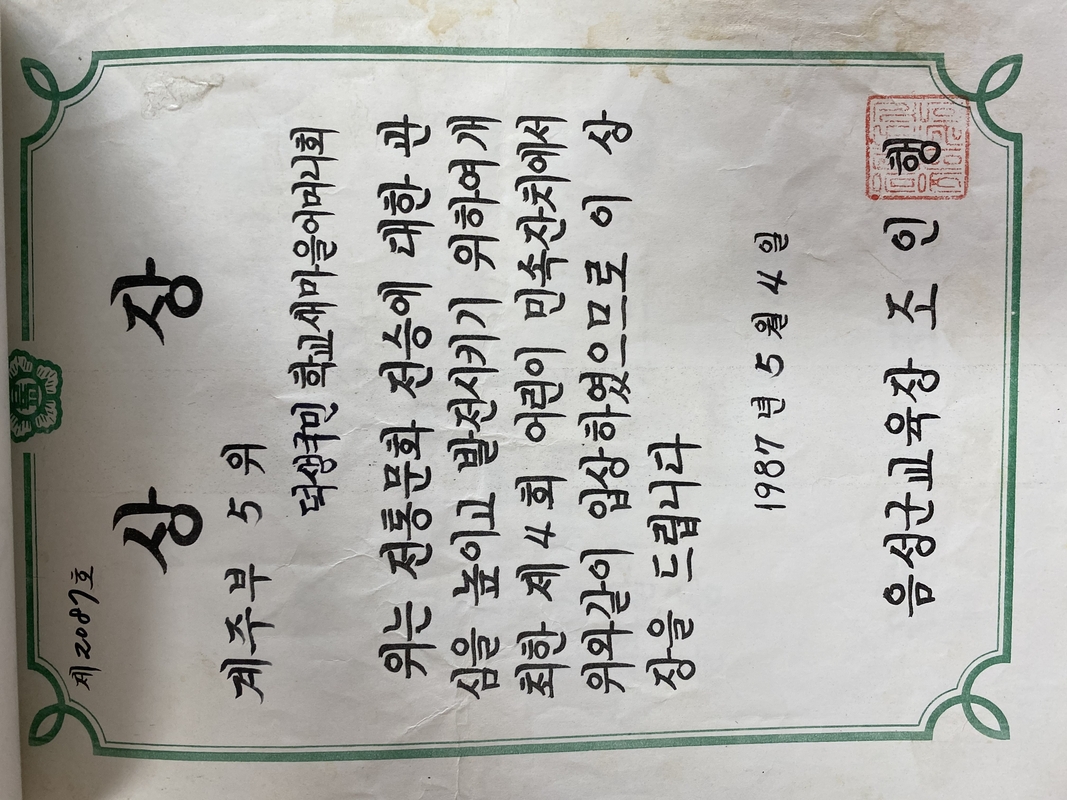 제2087호
상 장
계주부 5 위
되생국민 학교새마을어머니회
위는 전통문화 전승에 대한 관
심을 높이고 발전시키기 위하여 개
최한 제 4 회 어린이 민속잔치에서
위와같이 입상하였으므로 이 상
장을 드립니다
1987 년 5 월 4 일
음성군교육장 조 인 행